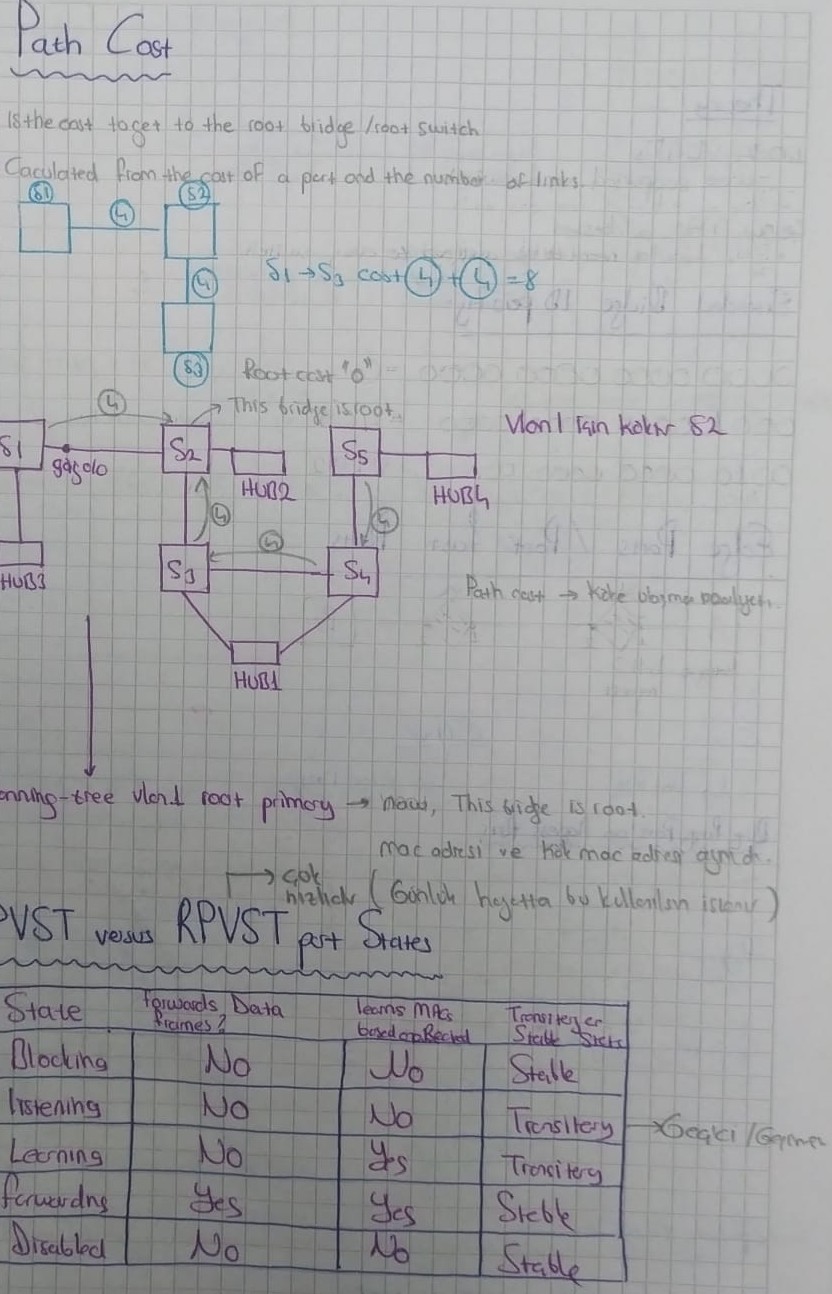 Path Cost
Is the cost to get to the root bridge /root switch
Caculated from the cost of a port and the number of links
S1
S2
4
4
S1 → S3 cost 4 + 4 = 8
S3
Root cost "0"
4
This bridge is root.
Vlan1 için köknr S2
S1
S2
S5
gigolo
HUB2
HUB4
4
4
4
S3
S4
HUB3
Path cost → Köke
HUB1
anning-tree vlan1 root primary → now, This bridge is root.
mac adresi ve kök mac adresi aynıdr.
→ çok
hızlıdır (Günlük hayatta bu kullanılan
PVST versus RPVST port States
State
forwards Data frames?
learns MACs based on Recived
Transitery or Stable State
Blocking No No Stable
listening No No Transitery → Geçici /
Learning No Yes Transitery
forwardng Yes Yes Stable
Disabled No No Stable